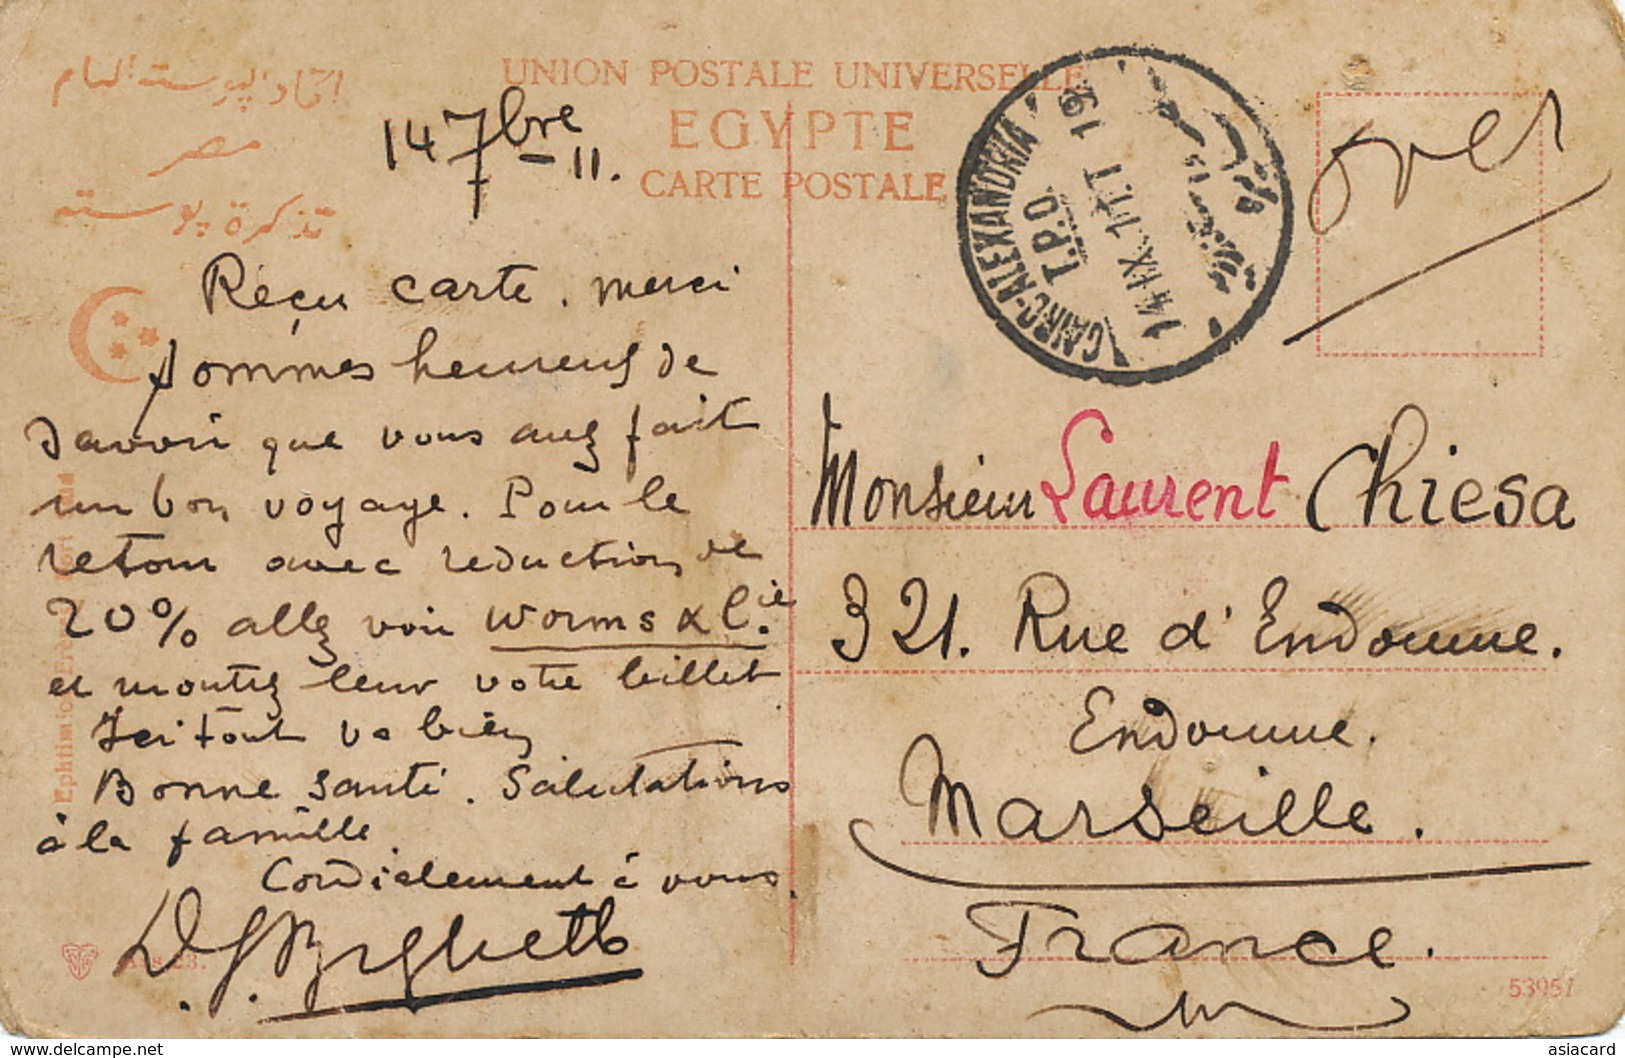 اتحاد البوسته العام
مصر
تذكرة بوسته
UNION POSTALE UNIVERSELLE
EGYPTE
CARTE POSTALE
14 7bre - 11.
Reçu carte. merci
sommes heureus de
savoir que vous avez fait
un bon voyage. Pour le
retour avec reduction de
20% allez voir Worms & Cie.
et montrez leur votre billet
Ici tout va bien
Bonne santé. Salutations
à la famille
Cordialement à vous.
Ephtimio
53957
CAIRO-ALEXANDRIA
T.P.O.
14 IX. 11. T 19
over
Monsieur Laurent Chiesa
321. Rue d'Endoume.
Endoume.
Marseille.
France.
www.delcampe.net
asiacard